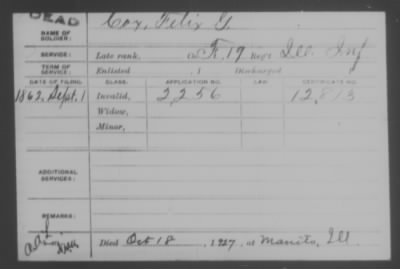 DEAD
NAME OF SOLDIER: Cox, Felix G
SERVICE: Late rank, Co. F, 19 Reg't Ill. Inf
TERM OF SERVICE: Enlisted , 1 Discharged
DATE OF FILING. CLASS. APPLICATION NO. LAW. CERTIFICATE NO.
1862, Sept. 1 Invalid, 2256 12,813
Widow,
Minor,
ADDITIONAL SERVICES:
REMARKS:
Died Oct 18, 1927, at Manito, Ill.